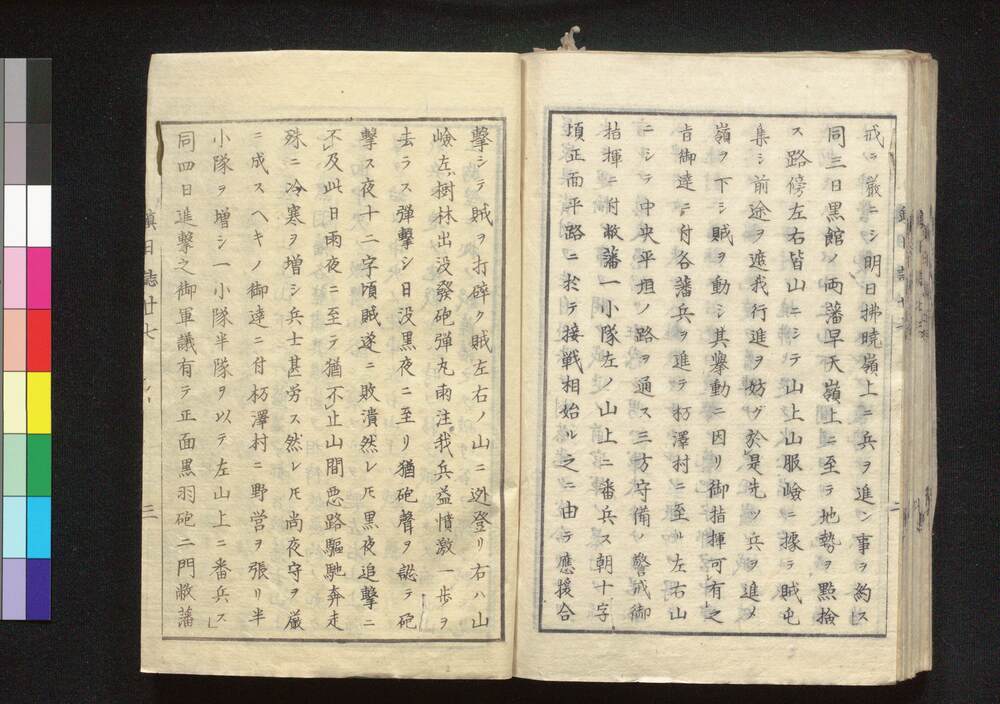 戒ヲ嚴ニシ明日拂曉嶺上ニ兵ヲ進ン事ヲ約ス
同三日黒館ノ両藩早天嶺上ニ至テ地勢ヲ點撿
ス路傍左右皆山ニシテ山上山服嶮ニ據テ賊屯
集シ前途ヲ遮我行進ヲ妨グ於是先ツ兵ヲ進メ
嶺ヲ下シ賊ヲ動シ其擧動ニ因リ御指揮可有之
旨御達ニ付各藩兵ヲ進テ杤澤村ニ至ル左右山
ニシテ中央平坦ノ路ヲ通ス三方守備ノ警戒御
指揮ニ付敝藩一小隊左ノ山上ニ番兵ス朝十字
頃正面平路ニ於テ接戦相始ル之ニ由テ應援合
撃シテ賊ヲ打辟ク賊左右ノ山ニ迯登リ右ハ山
嶮左ハ樹林出没發砲彈丸雨注我兵益憤激一歩ヲ
去ラス彈撃シ日没黒夜ニ至リ猶砲聲ヲ認テ砲
撃ス夜十二字頃賊遂ニ敗潰然レ𪜈黒夜追撃ニ
不及此日雨夜ニ至テ猶不止山間悪路驅馳奔走
殊ニ冷寒ヲ増シ兵士甚労ス然レ𪜈尚夜守ヲ厳
ニ成スヘキノ御達ニ付杤澤村ニ野営ヲ張リ半
小隊ヲ増シ一小隊半隊ヲ以テ左山上ニ番兵ス
同四日進撃之御軍議有テ正面黒羽砲二門敝藩
鎮日誌廿七
三